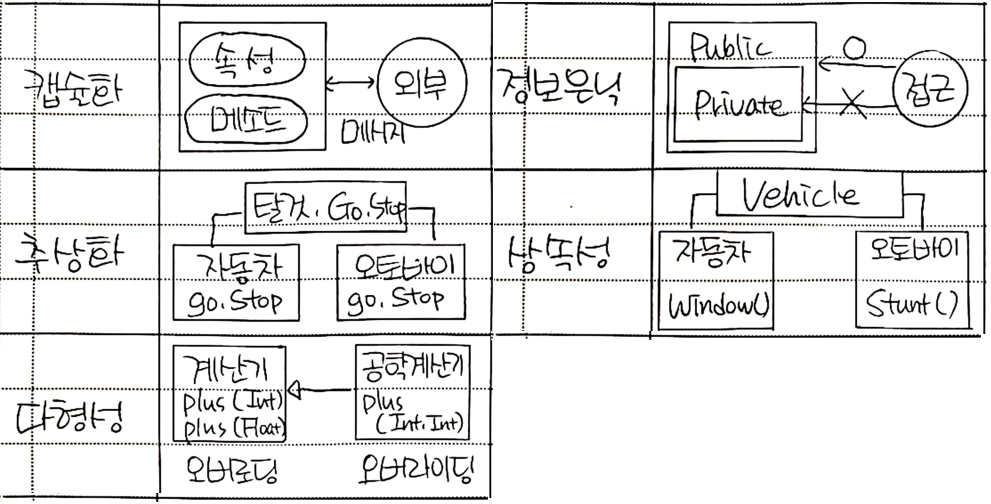 캡슐화
속성
메소드
외부
메시지
정보은닉
Public
Private
O
X
접근
추상화
탈것. Go. Stop
자동차
go. Stop
오토바이
go. Stop
상속성
Vehicle
자동차
Window()
오토바이
Stunt()
다형성
계산기
plus (Int)
plus (Float)
오버로딩
공학계산기
plus
(Int. Int)
오버라이딩